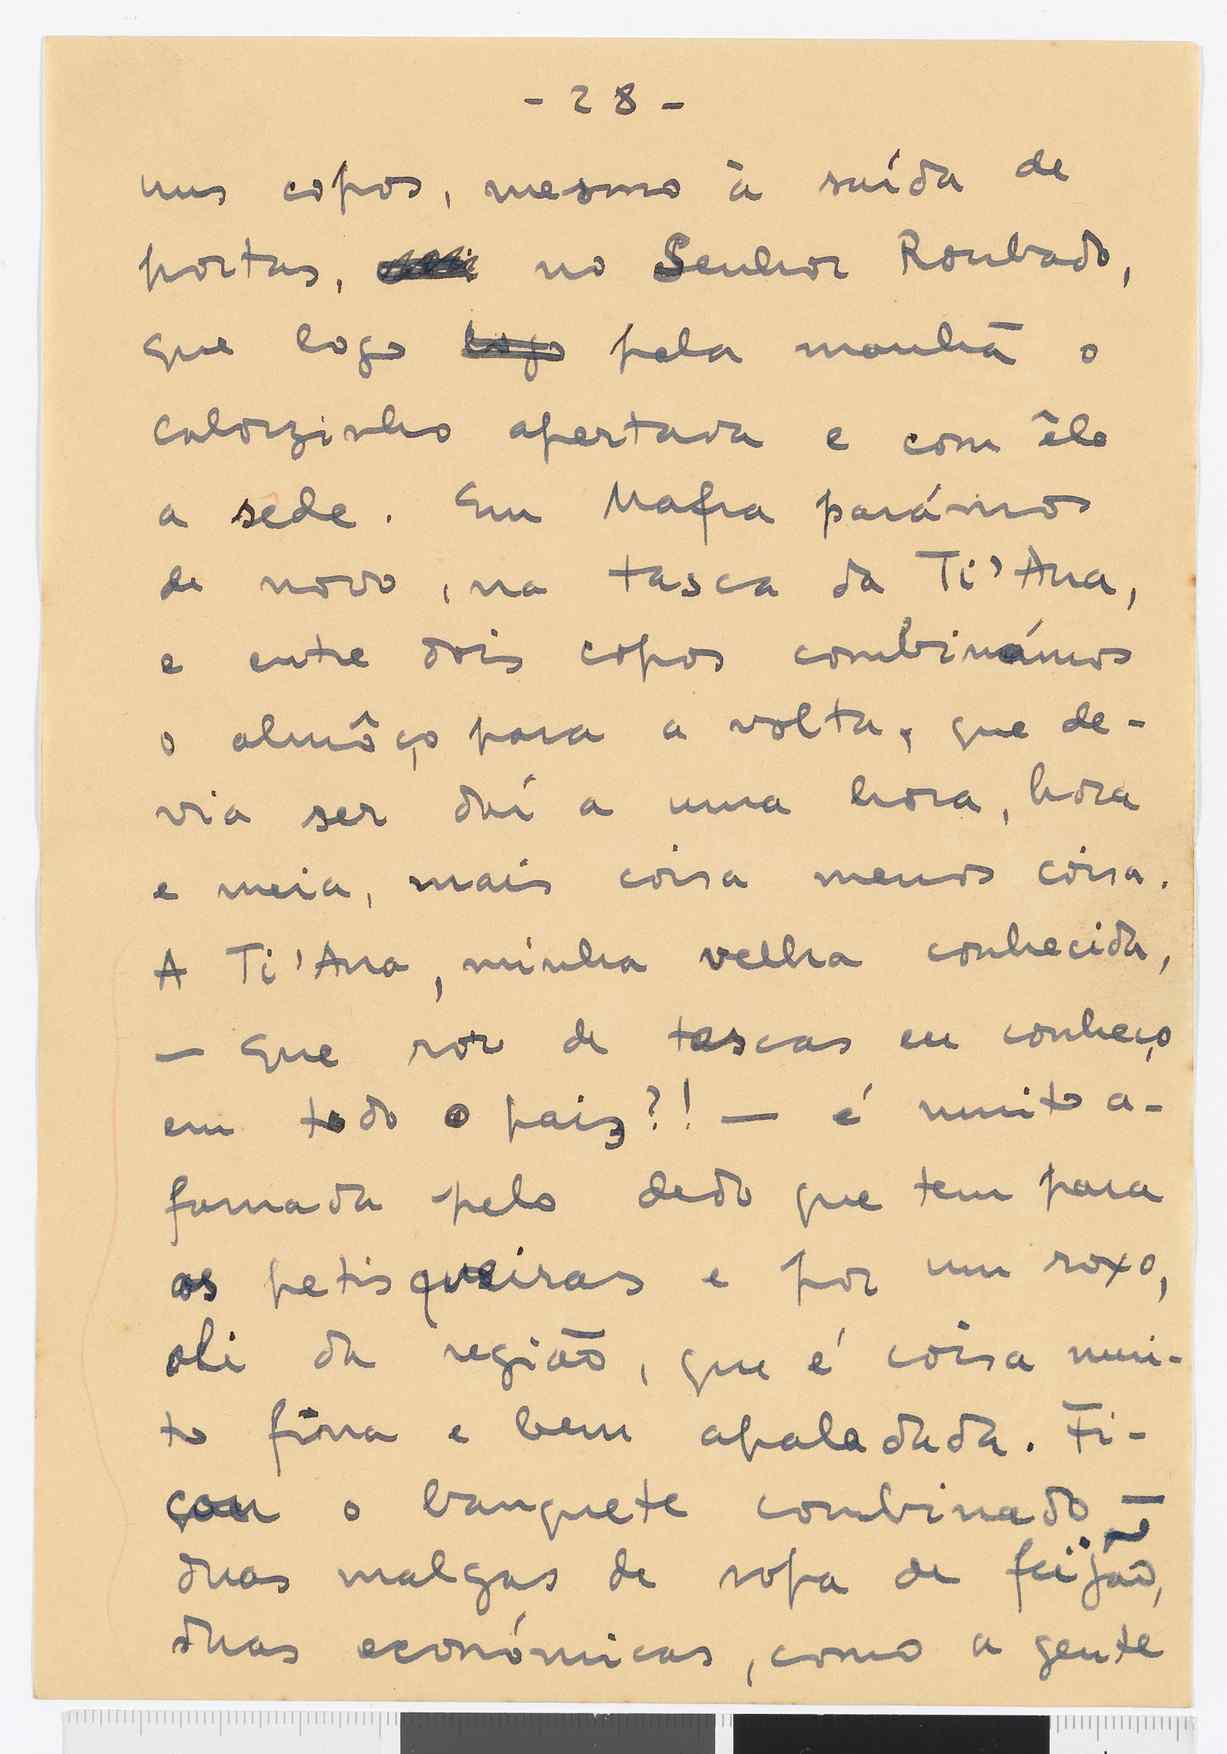 - 28 -
uns copos, mesmo à saída de
portas, no Senhor Roubado,
que logo logo pela manhã o
calorzinho apertava e com êle
a sede. Em Mafra parámos
de novo, na tasca da Ti'Ana,
e entre dois copos combinámos
o almôço para a volta, que de-
via ser daí a uma hora, hora
e meia, mais coisa menos coisa.
A Ti'Ana, minha velha conhecida,
— que ror de tascas eu conheço
em todo o paiz?! — é muito a-
famada pelo dedo que tem para
as petisqueiras e por um roxo,
ali da região, que é coisa mui-
to fina e bem apaladada. Fi-
cou o banquete combinado —
duas malgas de sopa de feijão,
duas económicas, como a gente